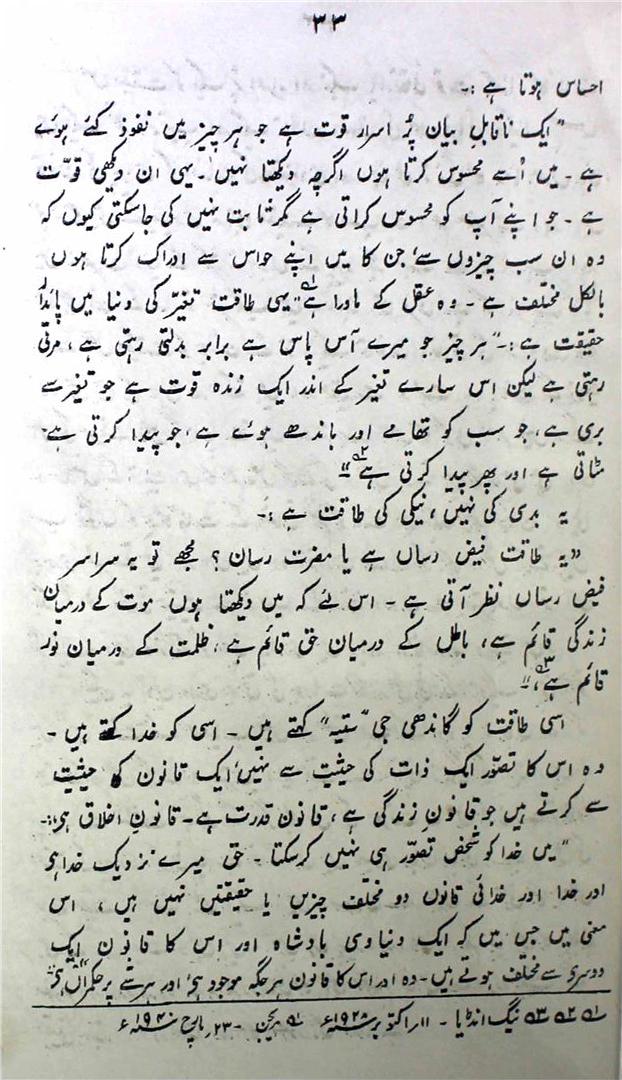 ۳۳
احساس ہوتا ہے :۔
"ایک ناقابلِ بیان پُر اسرار قوت ہے جو ہر چیز میں نفوذ کئے ہوئے
ہے ۔ میں اُسے محسوس کرتا ہوں اگرچہ دیکھتا نہیں ۔ یہی ان دکھی قوّت
ہے ۔ جو اپنے آپ کو محسوس کراتی ہے مگر ثابت نہیں کی جاسکتی کیوں کہ
وہ ان سب چیزوں سے، جن کا میں اپنے حواس سے ادراک کرتا ہوں
بالکل مختلف ہے ۔ وہ عقل کے ماورا ہے" ۱؎ یہی طاقت تغیّر کی دنیا میں پائدار
حقیقت ہے :۔ "ہر چیز جو میرے آس پاس ہے برابر بدلتی رہتی ہے ، مرتی
رہتی ہے لیکن اس سارے تغیر کے اندر ایک زندہ قوت ہے جو تغیر سے
بری ہے ، جو سب کو تھامے اور باندھے ہوئے ہے ، جو پیدا کرتی ہے۔
مٹاتی ہے اور پھر پیدا کرتی ہے ۲؎"
یہ بدی کی نہیں ، نیکی کی طاقت ہے :۔
"یہ طاقت فیض رساں ہے یا مضرت رساں ؟ مجھے تو یہ سراسر
فیض رساں نظر آتی ہے ۔ اس لئے کہ میں دیکھتا ہوں موت کے درمیان
زندگی قائم ہے ، باطل کے درمیان حق قائم ہے ، ظلمت کے درمیان نور
قائم ہے ۳؎"۔
اسی طاقت کو گاندھی جی "ستیہ" کہتے ہیں ۔ اسی کو خدا کہتے ہیں ۔
وہ اس کا تصوّر ایک ذات کی حیثیت سے نہیں، ایک قانون کی حیثیت
سے کرتے ہیں جو قانونِ زندگی ہے ، قانون قدرت ہے ۔ قانونِ اخلاق ہی :۔
"میں خدا کو شخص تصوّر ہی نہیں کرسکتا ۔ حق میرے نزدیک خدا ہی
اور خدا اور خدائی قانون دو مختلف چیزیں یا حقیقتیں نہیں ہیں ، اس
معنی میں جس میں کہ ایک دنیاوی بادشاہ اور اس کا قانون ایک
دوسری سے مختلف ہوتے ہیں ۔ وہ اور اس کا قانون ہر جگہ موجود ہی اور ہر شے پر حکمراں ہی"
۱؎ ۲؎ ۳؎ ینگ انڈیا ۔ ۱۱ر اکتوبر ۱۹۲۸ء ہریجن ۔ ۲۳ر مارچ ۱۹۴۰ء